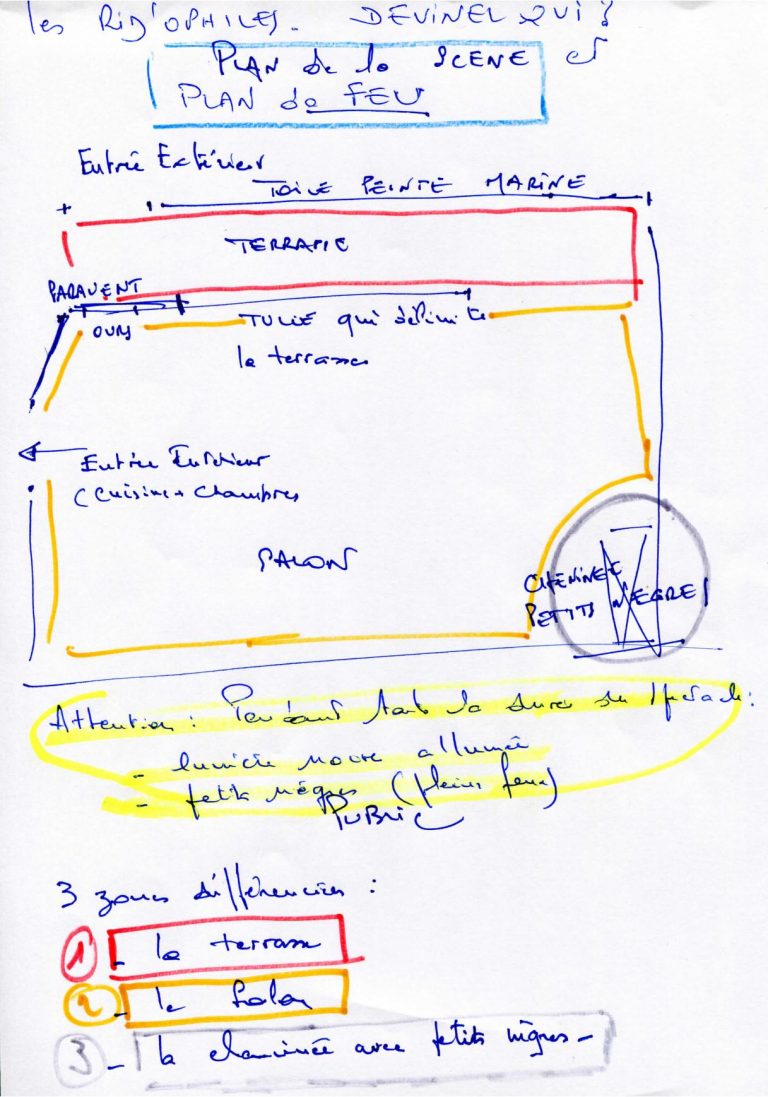 les RID'OPHILES. DEVINEZ QUI?
PLAN de la SCENE et
PLAN de FEU
Entrée Extérieur
TOILE PEINTE MARINE
TERRASSE
PARAVENT
OURS
TULLE qui délimite
la terrasse
Entrée Intérieur
(Cuisine + Chambres
SALON
CHEMINEE
PETITS NEGRES
Attention : Pendant toute la durée du spectacle :
- lumière noire allumée
- petits nègres (pleins feux)
PUBLIC
3 zones différenciées :
1 - la terrasse
2 - le salon
3 - la cheminée avec petits nègres -